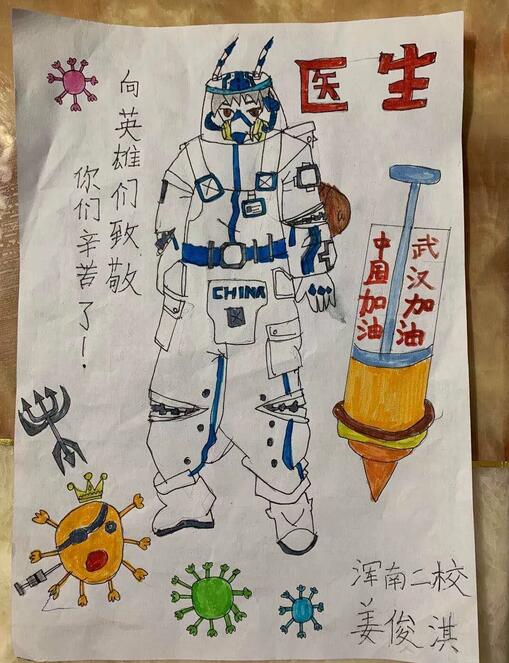 医生
向英雄们致敬
你们辛苦了！
CHINA
武汉加油
中国加油
浑南二校
姜俊淇